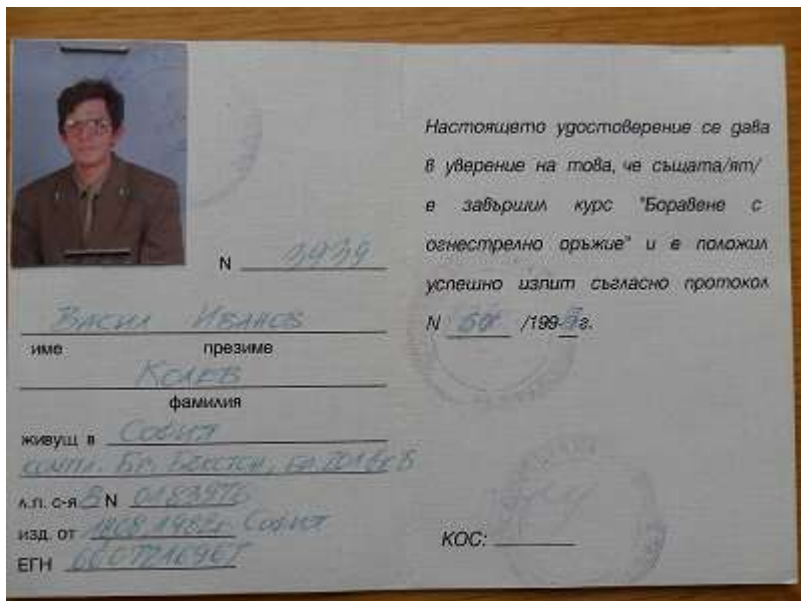 N 3939
Васил Иванов
име презиме
Колев
фамилия
живущ в София
компл. Бр. Бъкстон, бл.
л.п. с-я В N 0183976
изд. от София
ЕГН
Настоящето удостоверение се дава
в уверение на това, че същата/ят/
е завършил курс "Боравене с
огнестрелно оръжие" и е положил
успешно изпит съгласно протокол
N /199 г.
КОС: